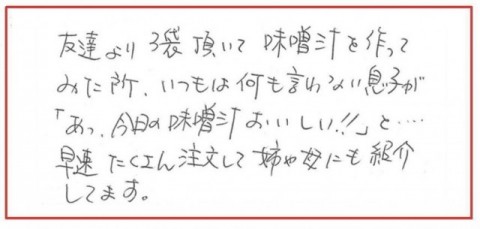 友達より3袋頂いて味噌汁を作って
みた所、いつもは何も言わない息子が
「あっ、今日の味噌汁おいしい!!」と‥‥
早速たくさん注文して姉や母にも紹介
してます。